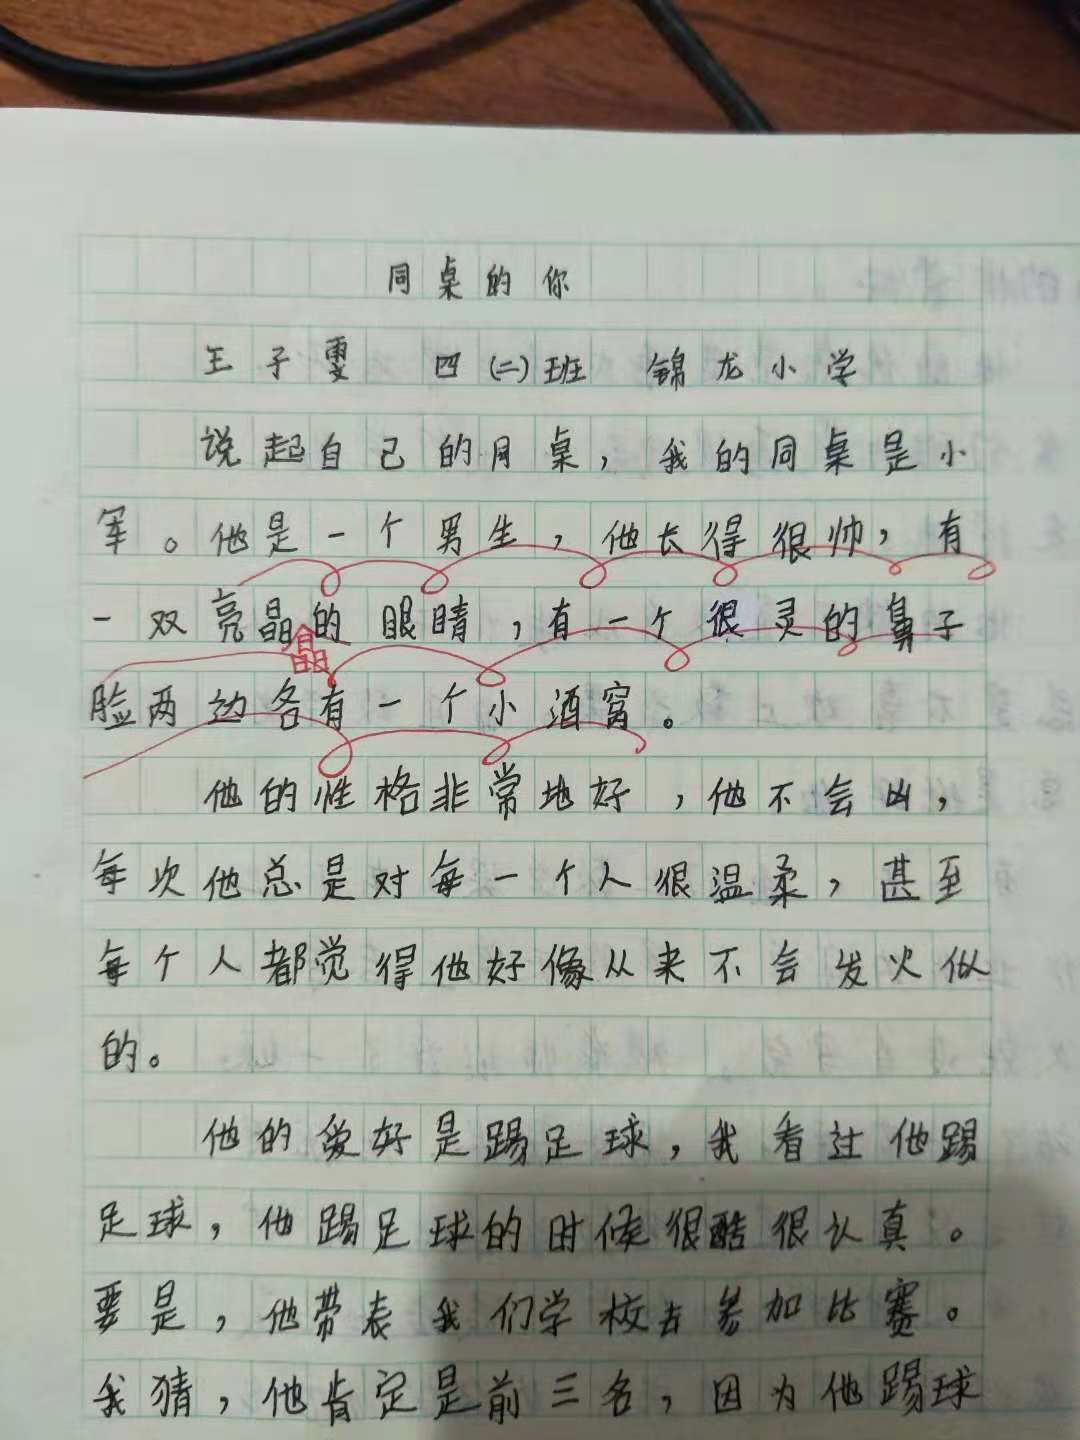 同桌的你
王子雯 四(二)班 锦龙小学
说起自己的同桌，我的同桌是小
军。他是一个男生，他长得很帅，有
一双亮晶的眼睛，有一个很灵的鼻子
晶
脸两边各有一个小酒窝。
他的性格非常地好，他不会凶，
每次他总是对每一个人很温柔，甚至
每个人都觉得他好像从来不会发火似
的。
他的爱好是踢足球，我看过他踢
足球，他踢足球的时候很酷很认真。
要是，他带表我们学校去参加比赛。
我猜，他肯定是前三名，因为他踢球